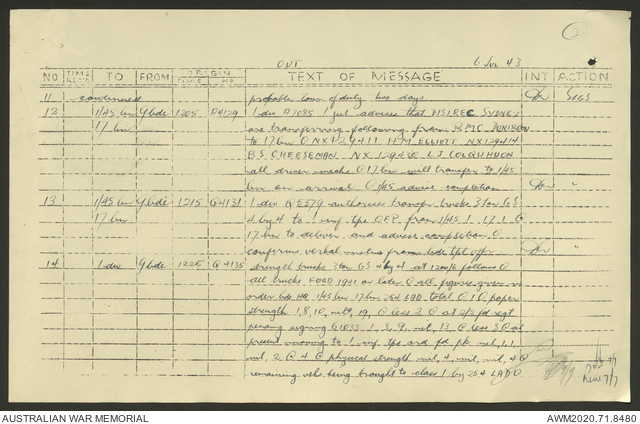 OUT 6 Jul 43
NO TIME RECD TO FROM ORIGIN TIME NO TEXT OF MESSAGE INT ACTION
11 continued probable tour of duty two days Sigs
12 1/45 bn 9 bde 1205 A4129 1 div A7085 1 jul advises that DISTREC SYDNEY
17 bn are transferring following from
to 17 bn NX129411 H.M. ELLIOTT NX129414
B.S. CHEESEMAN NX129430 L.J. COLQUHOUN
all driver mechs 17 bn will transfer to 1/45
bn on arrival 1/45 advise completion "
13 1/45 bn 9 bde 1215 Q4131 1 div Q5579 authorises transfer trucks 3 ton GS
17 bn 4 by 4 to 1 inf tps from 1/45 1 17 1
17 bn to deliver and advise completion
confirms verbal instns from bde tpt offr "
14 1 div 9 bde 1225 Q4135 strength trucks 3 ton GS 4 by 4 at 1200/6 follows
all trucks FORD 1941 or later all figures given in
order bde HQ 1/45 bn 17 bn 254 LAD total paper
strength 1, 8, 10, nil, 19, less 2 at 2/3 fd regt
pending signing 1, 3, 9, nil, 13, less 3 at
present moving to 1 inf tps and fd pk nil, 1, 1,
nil, 2 physical strength nil, 4, nil, nil, 4
remaining vehs being brought to class 1 by 254 LAD
7/7
AUSTRALIAN WAR MEMORIAL AWM2020.71.8480